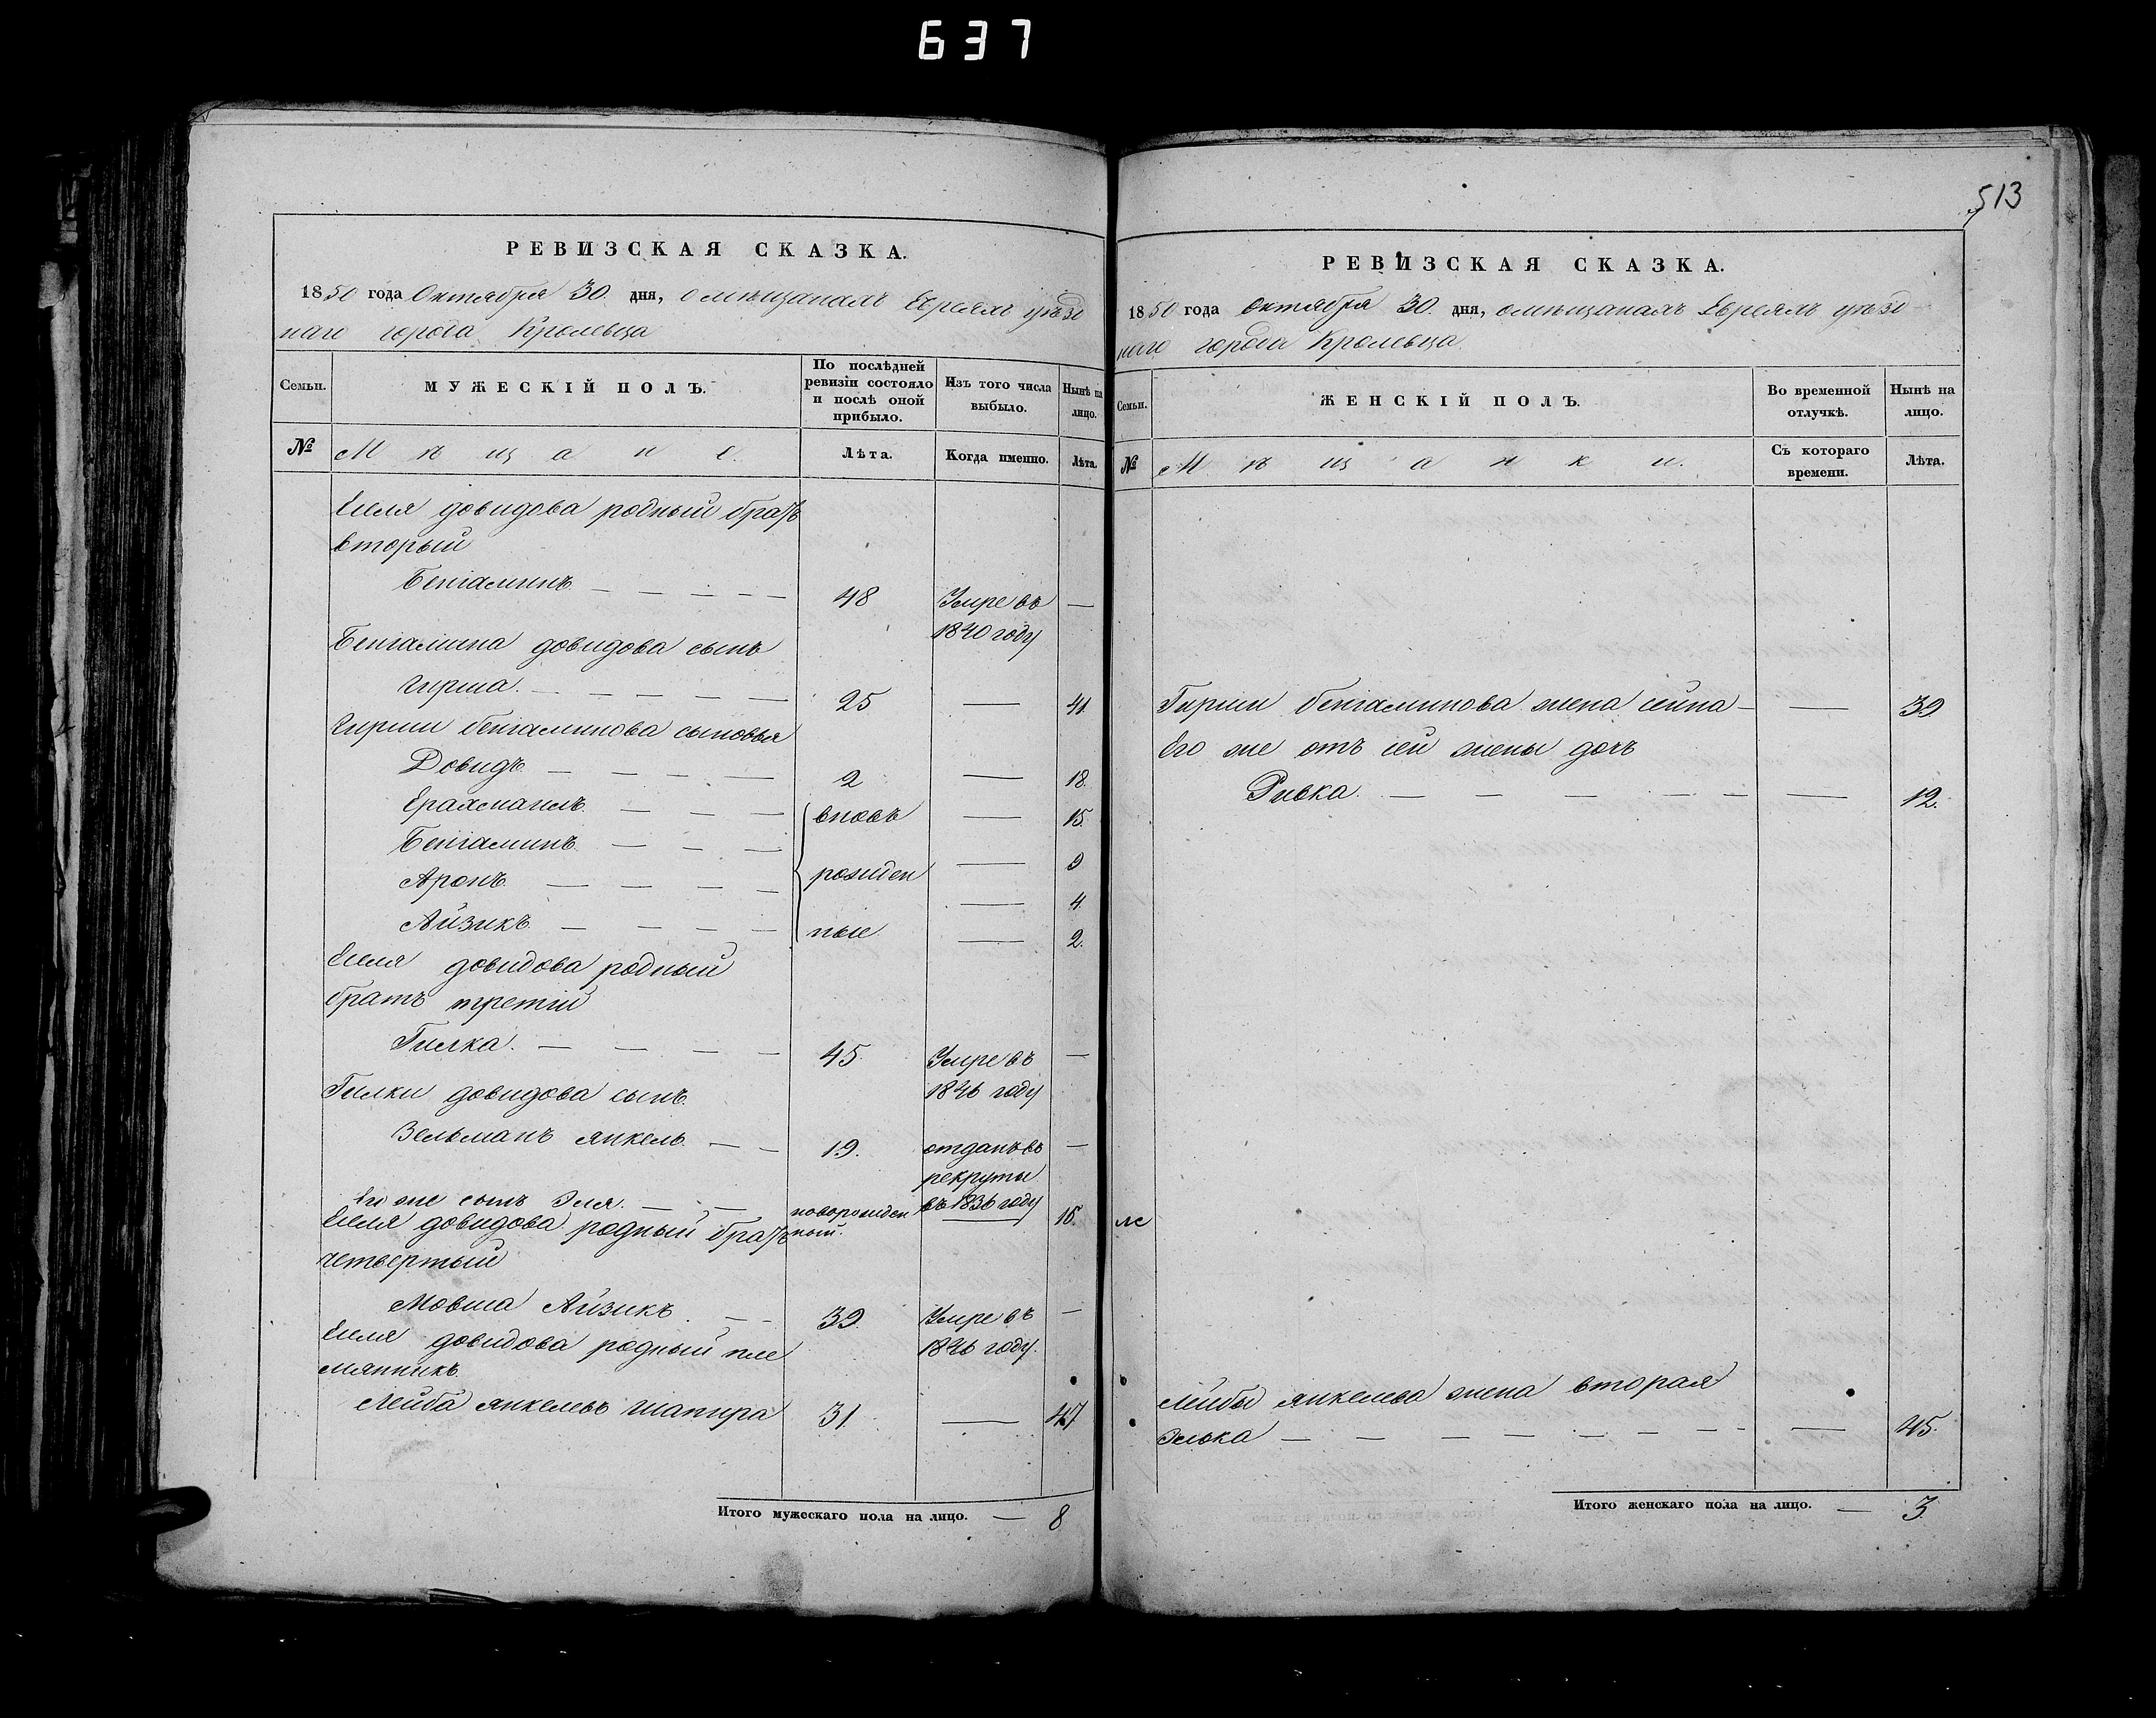 637
513
РЕВИЗСКАЯ СКАЗКА.
1850 года Октября 30. дня, о мѣщанахъ Евреяхъ уѣзд
наго города Кролевца
Семьи.
МУЖЕСКІЙ ПОЛЪ.
По послѣдней ревизіи состояло и послѣ оной прибыло.
Изъ того числа выбыло.
Нынѣ на лицо.
№
Мѣщане.
Лѣта.
Когда именно.
Лѣта.
довидова родный братъ
вторый
Беніаминъ — 48 Умре въ —
1840 году
Беніамина довидова сынъ
Гирша. — 25 — 41.
Гирши беніаминова сыновья
Довидъ. — 2 — 18.
— вновь — 15.
Беніаминъ — 9
Аронъ — рожден — 4.
Айзикъ. — ные — 2.
довидова родный
братъ третій
Гилка. — 45. Умре въ —
1846 году
Гилки довидова сынъ.
Зельманъ янкель. — 19. отданъ въ —
рекруты
въ 1836 году
Его же сынъ Эля. — новорожден
ный. — 15.
довидова родный братъ
четвертый
Мовша Айзикъ — 39. Умре въ —
1846 году.
довидова родный пле
мянникъ.
Лейба янкелевъ шапира 31. — 47
Итого мужескаго пола на лицо. — 8
РЕВИЗСКАЯ СКАЗКА.
1850 года Октября 30. дня, о мѣщанахъ Евреяхъ уѣзд
наго города Кролевца.
Семьи.
ЖЕНСКІЙ ПОЛЪ.
Во временной отлучкѣ.
Нынѣ на лицо.
№
Мѣщанки.
Съ котораго времени.
Лѣта.
Гирши беніаминова жена — 39
Его же отъ сей жены дочь
Ривка. — 12.
Лейбы янкелева жена вторая
Элька — 45.
Итого женскаго пола на лицо. — 3.